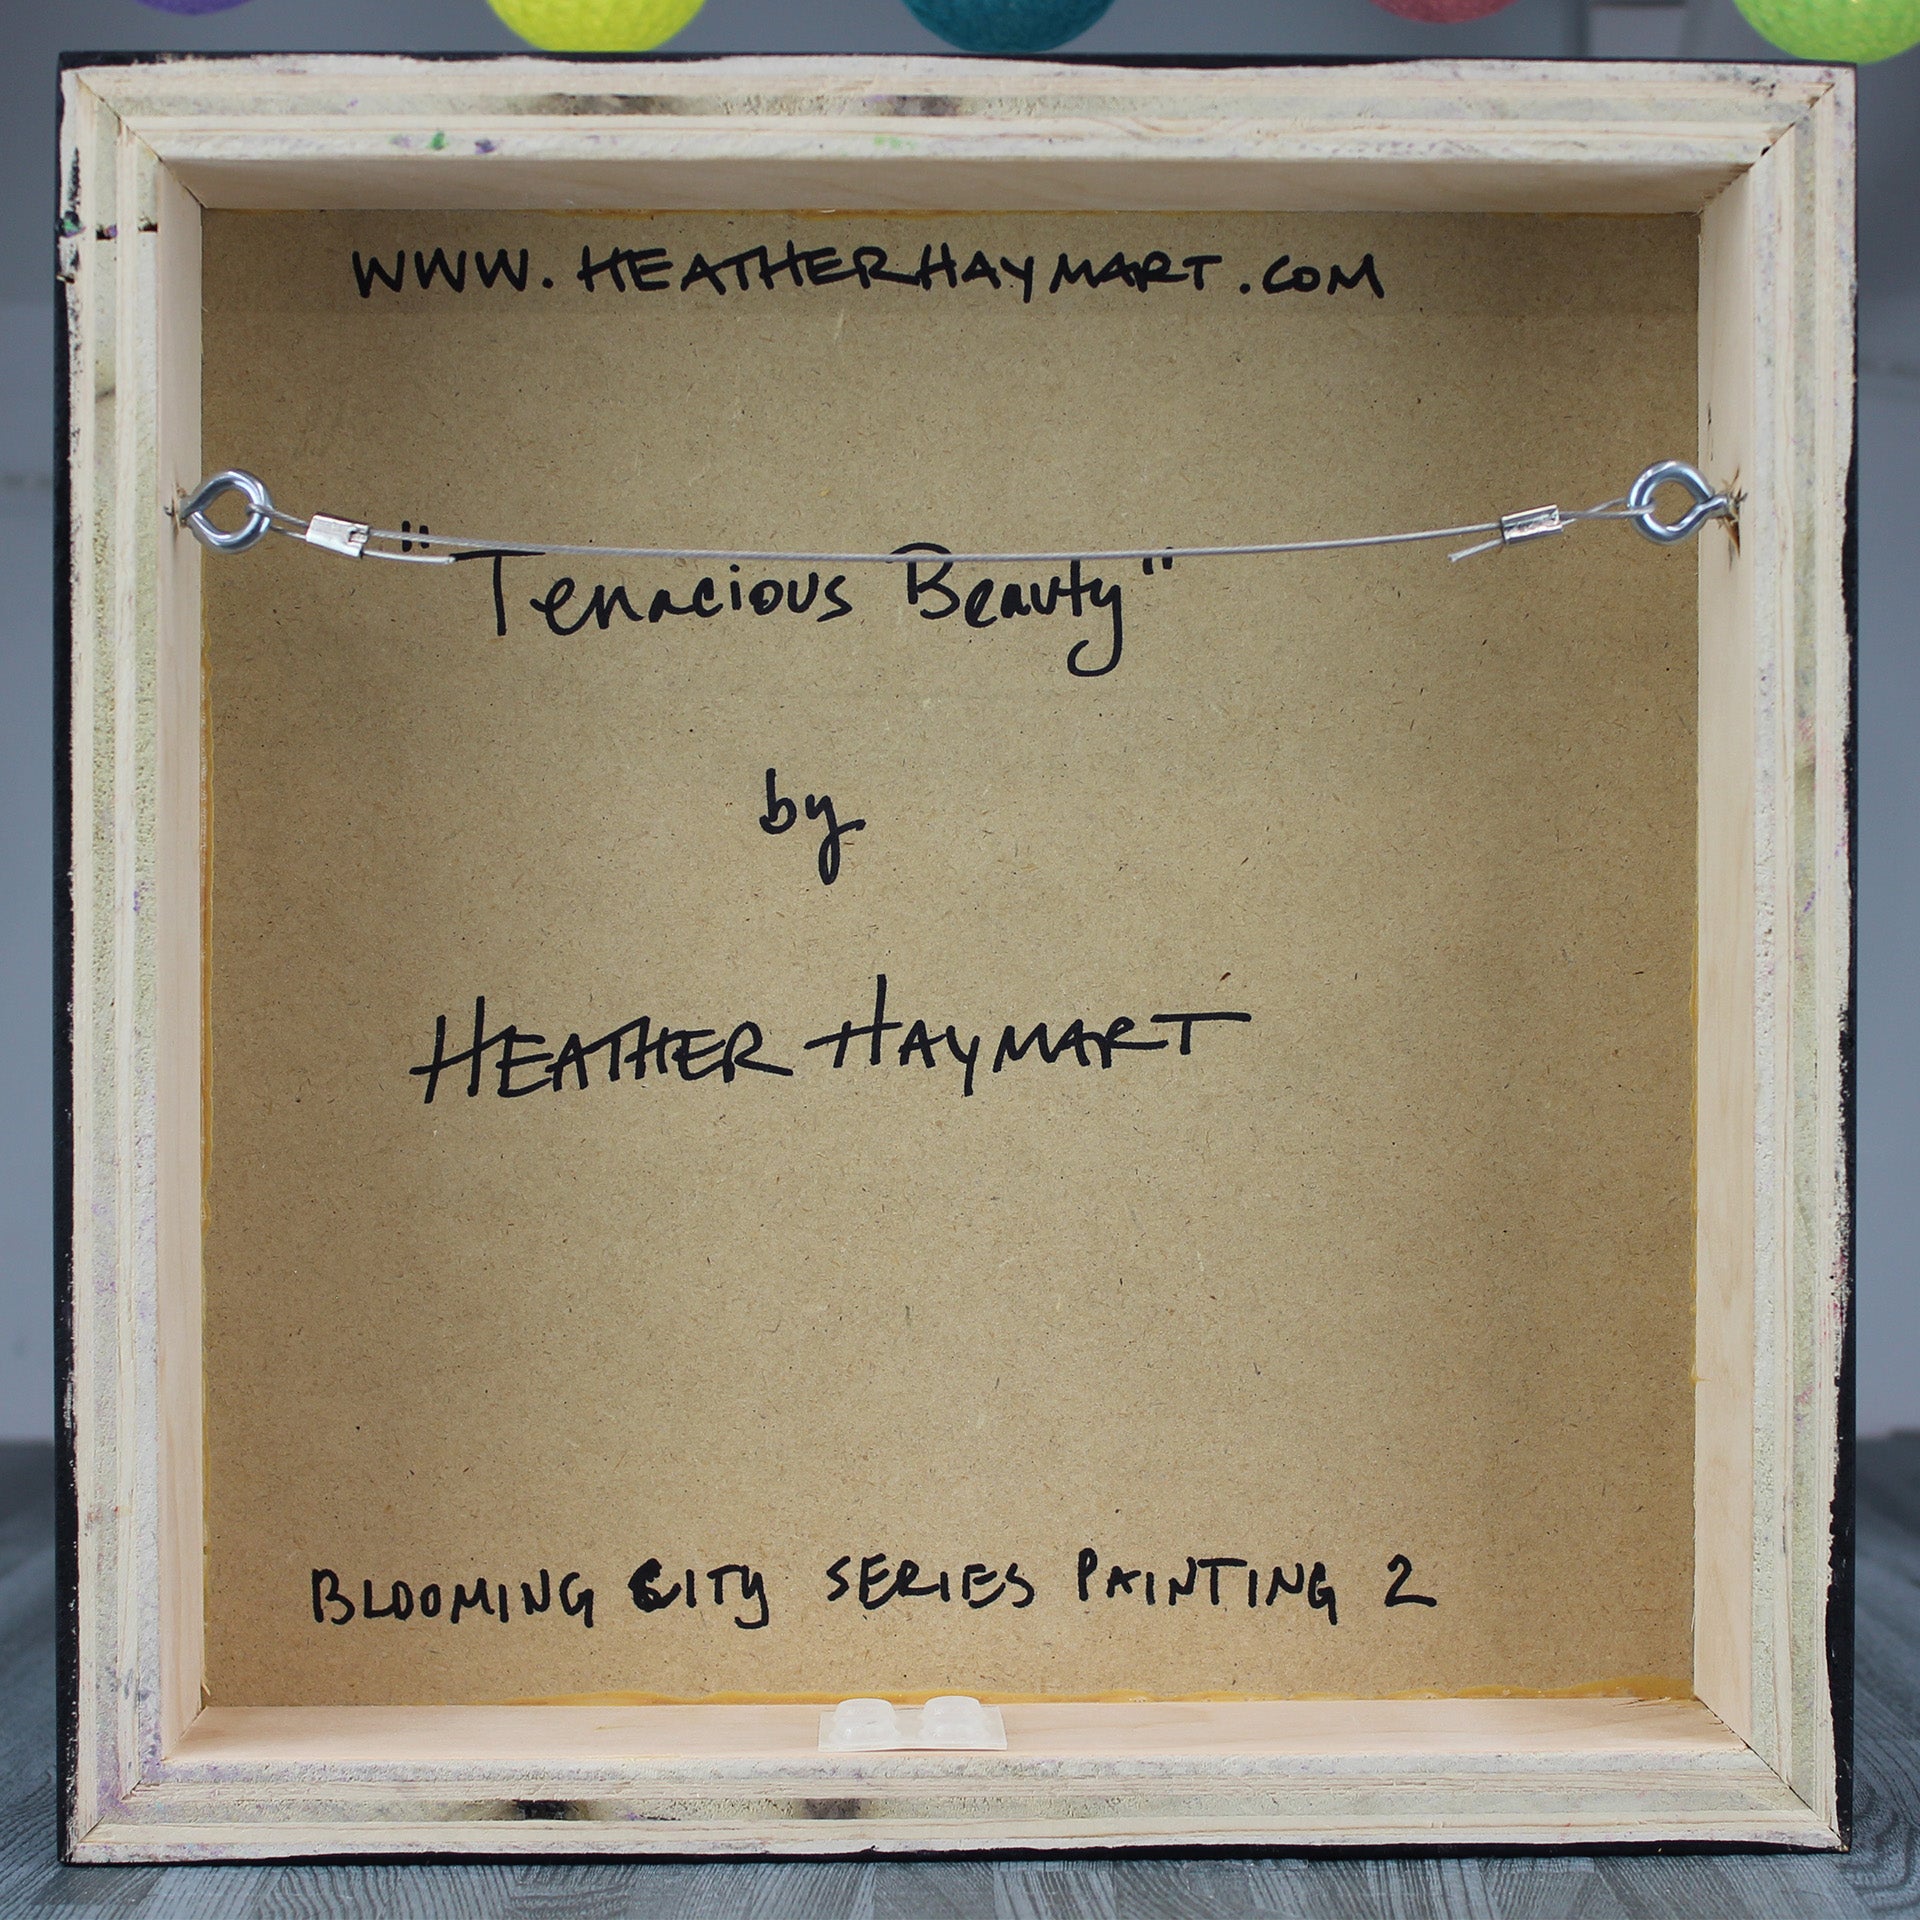 WWW.HEATHERHAYMART.COM
"Tenacious Beauty"
by
HEATHER HAYMART
BLOOMING CITY SERIES PAINTING 2